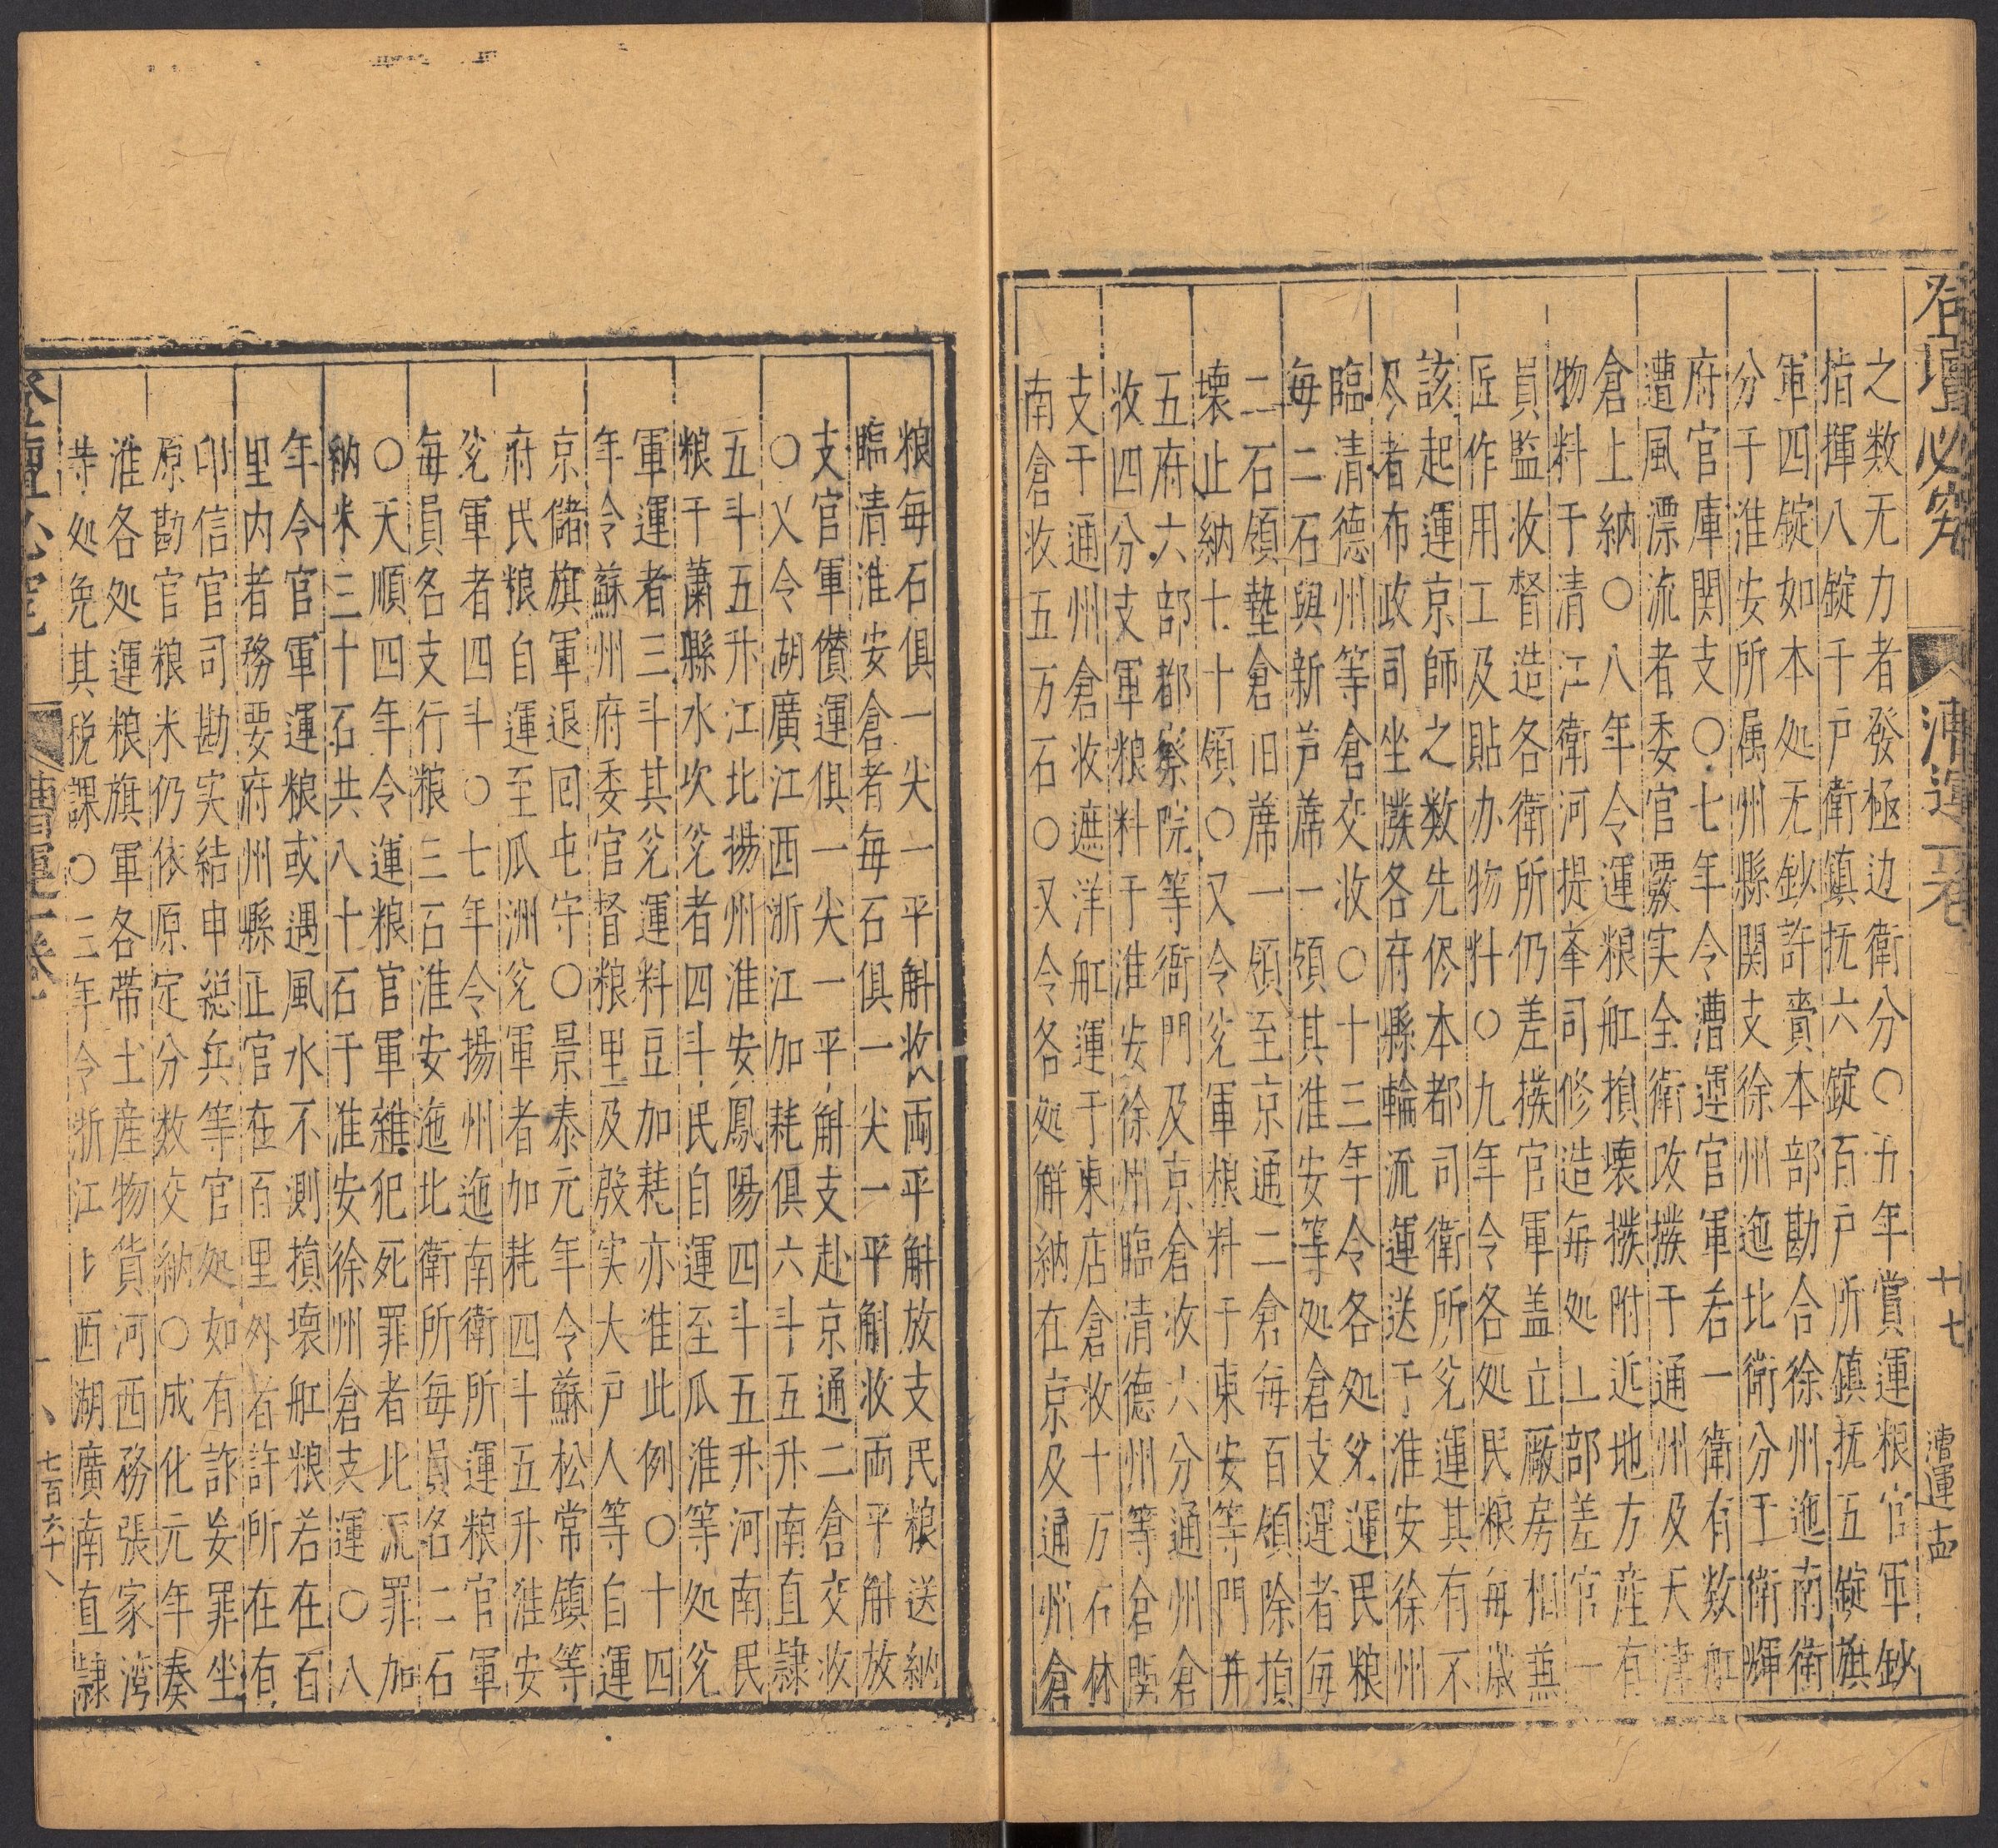 登壇必究 漕運一卷 廿七 漕運十四
之数无力者發極边衛分〇五年賞運粮官军鈔
指揮八錠千户衛鎮抚六錠百户所鎮抚五錠旗
軍四錠如本处无鈔許賫本部勘合徐州迤南衛
分于淮安所属州縣関支徐州迤北衛分于衛輝
府官庫関支〇七年令漕運官軍若一衛有数舡
遭風漂流者委官覈实全衛改撥于通州及天津
倉上納〇八年令運粮舡損壊撥附近地方産有
物料于清江衛河提举司修造毎处工部差官一
員監收督造各衛所仍差撥官軍盖立厰房相兼
匠作用工及貼办物料〇九年令各处民粮毎歳
該起運京師之数先侭本都司衛所兊運其有不
尽者布政司坐撥各府縣輪流運送于淮安徐州
臨清德州等倉交收〇十三年令各处兊運民粮
毎二石與新芦蓆一領其淮安等处倉支運者毎
二石領墊倉旧蓆一領至京通二倉毎百領除損
壊止納七十領〇又令兊軍粮料于東安等門并
五府六部都察院等衙門及京倉收六分通州倉
收四分支軍粮料于淮安徐州臨清德州等倉関
支于通州倉收遮洋舡運于東店倉收十万石林
南倉收五万石〇又令各处觧納在京及通州倉
粮毎石俱一尖一平斛收両平斛放支民粮送納
臨清淮安倉者毎石俱一尖一平斛收両平斛放
支官軍儹運俱一尖一平斛支赴京通二倉交收
〇又令湖廣江西浙江加耗俱六斗五升南直隷
五斗五升江北揚州淮安鳳陽四斗五升河南民
粮于蕭縣水次兊者四斗民自運至瓜淮等处兊
軍運者三斗其兊運料豆加耗亦准此例〇十四
年令蘇州府委官督粮里及殷实大户人等自運
京儲旗軍退囘屯守〇景泰元年令蘇松常鎮等
府民粮自運至瓜洲兊軍者加耗四斗五升淮安
兊軍者四斗〇七年令揚州迤南衛所運粮官軍
毎員名支行粮三石淮安迤北衛所毎員名二石
〇天順四年令運粮官軍雜犯死罪者比流罪加
納米三十石共八十石于淮安徐州倉支運〇八
年令官軍運粮或遇風水不測損壊舡粮若在百
里内者務要府州縣正官在百里外者許所在有
印信官司勘实結申総兵等官处如有詐妄罪坐
原勘官粮米仍依原定分数交納〇成化元年奏
淮各处運粮旗軍各帶土産物貨河西務張家湾
等处免其税課〇三年令浙江江西湖廣南直隷
登壇必究 漕運一卷 七百六十八